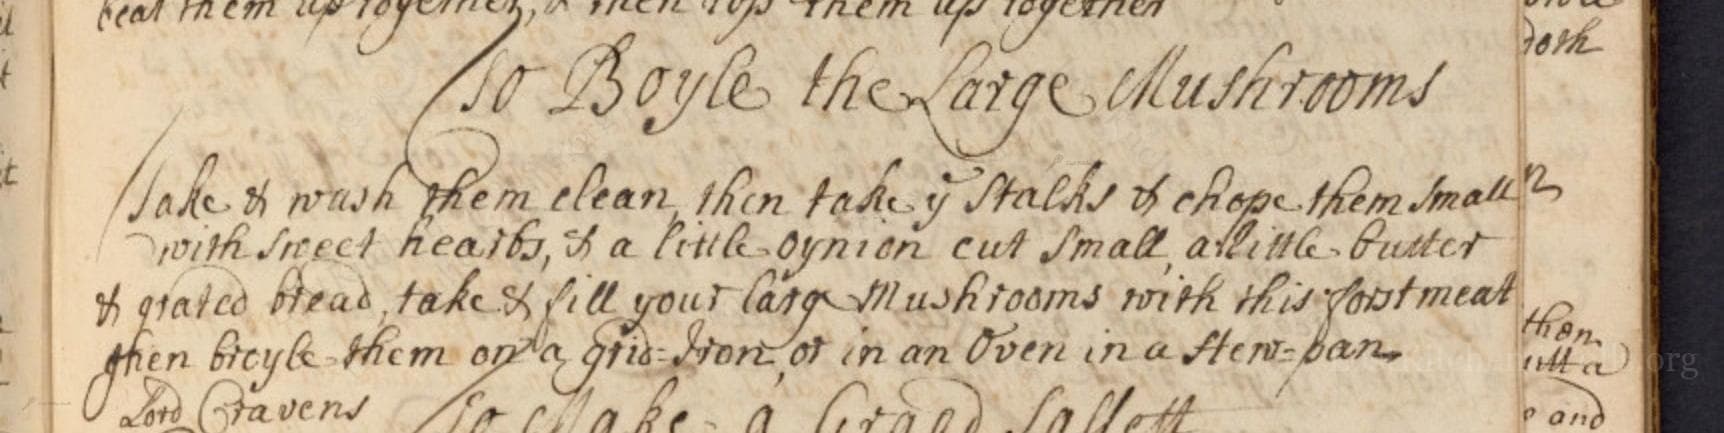 beat them up together, & then toss them up together
To Boyle the Large Mushrooms
Take & wash them clean, then take yͤ Stalks & chope them small
with sweet hearbs, & a little oynion cut small, a little butter
& grated bread, take & fill your large Mushrooms with this forst meat
then broyle them on a grid=Iron, or in an Oven in a stew=pan
Lord Cravens
To Make a Grand Sallett
doth
then
and